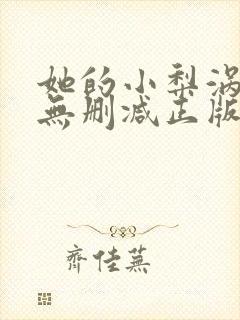 她的小梨涡
無删减正版
齊佳蕪